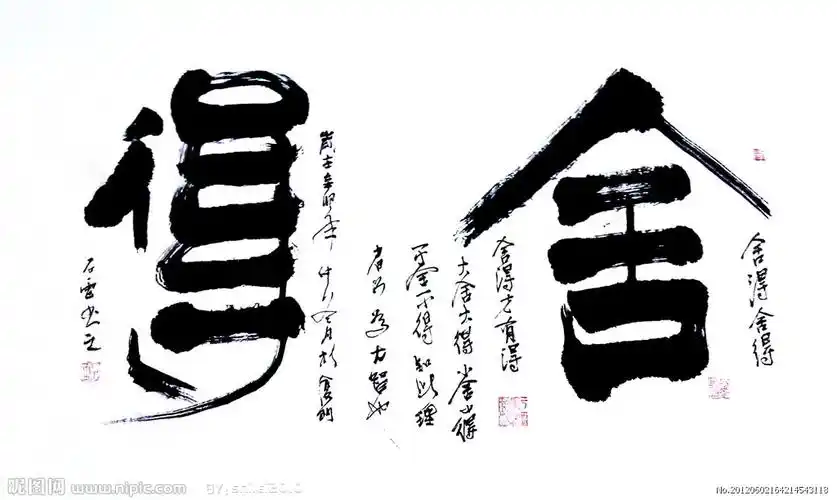 舍得舍得
舍
舍得有得
大舍大得小舍小得
不舍不得知此理
者为大智也
歲在辛卯年月於
得
石雲書之
昵图网 www.nipic.com
No.20120602164214543118